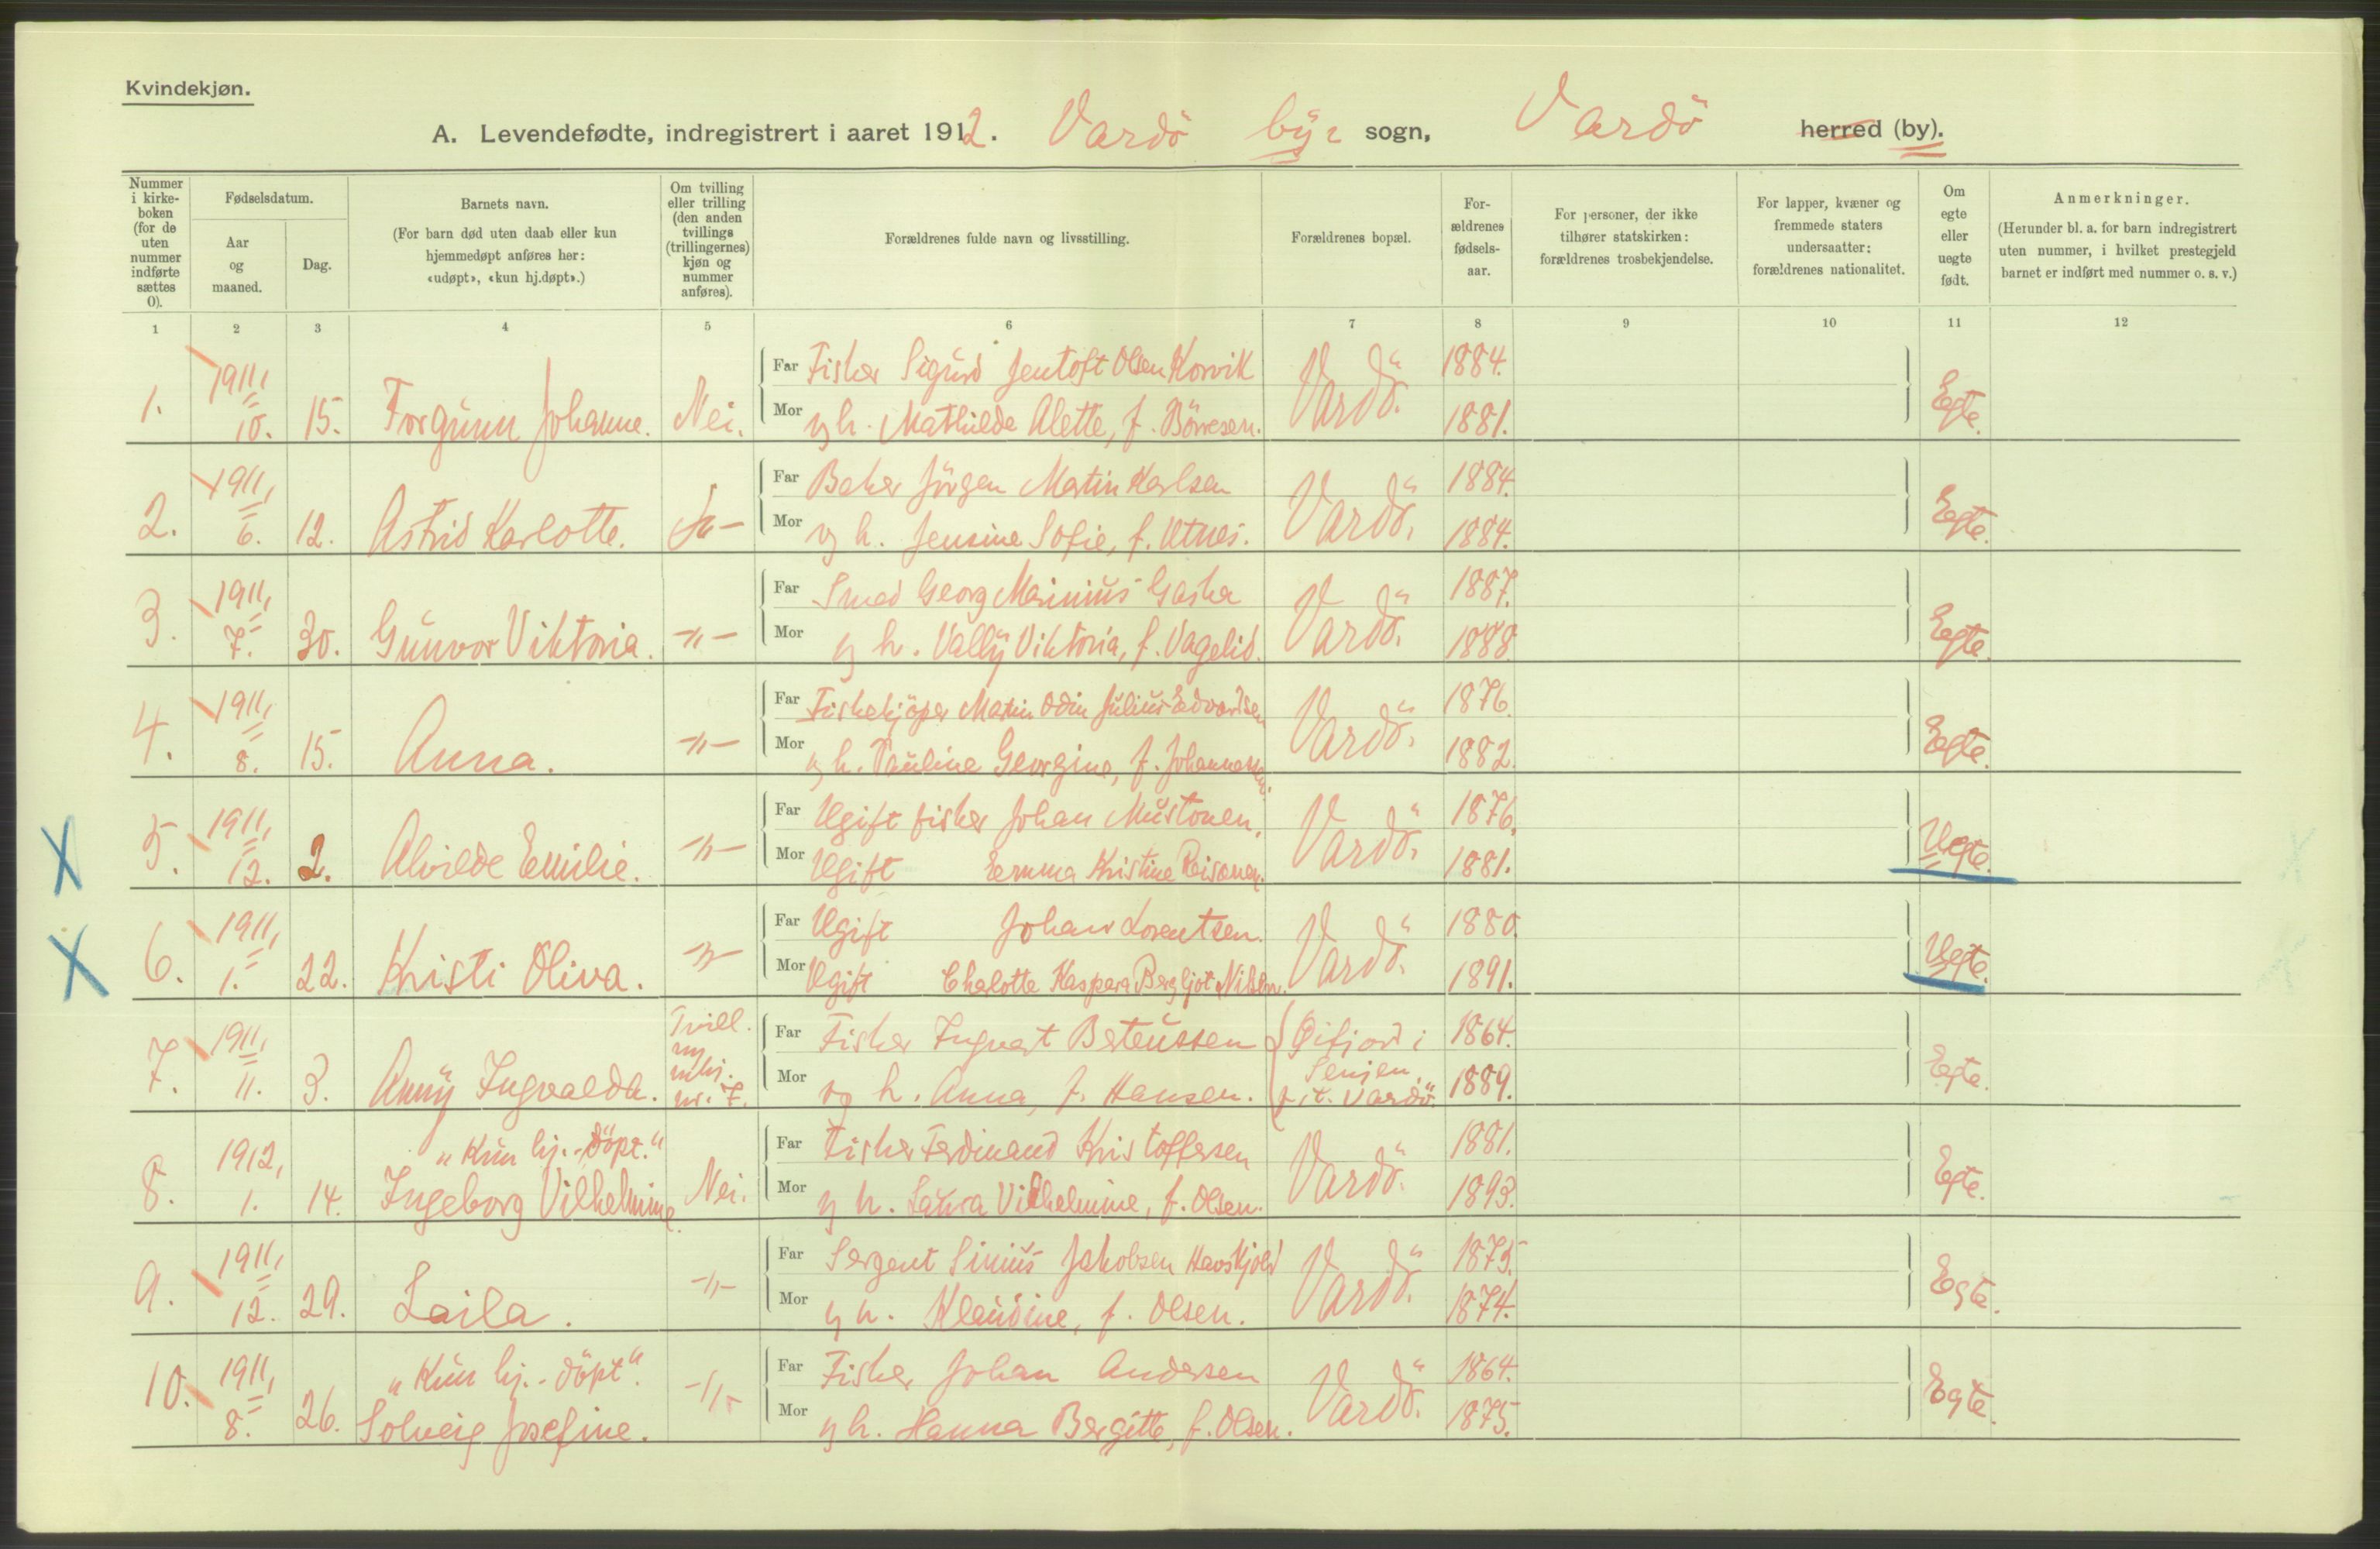 Kvindekjøn.
A. Levendefødte, indregistrert i aaret 1912. Vardö by: sogn, Vardö herred (by).
Nummer i kirke-boken (for de uten nummer indførte sættes 0).
Fødselsdatum.
Aar og maaned.
Dag.
Barnets navn.
(For barn død uten daab eller kun hjemmedøpt anføres her: «udøpt», «kun hj.døpt».)
Om tvilling eller trilling (den anden tvillings (trillingernes) kjøn og nummer anføres).
Forældrenes fulde navn og livsstilling.
Forældrenes bopæl.
For-ældrenes fødsels-aar.
For personer, der ikke tilhører statskirken: forældrenes trosbekjendelse.
For lapper, kvæner og fremmede staters undersaatter: forældrenes nationalitet.
Om egte eller uegte født.
Anmerkninger.
(Herunder bl. a. for barn indregistrert uten nummer, i hvilket prestegjeld barnet er indført med nummer o. s. v.)
1 2 3 4 5 6 7 8 9 10 11 12
1. 1911, 10. 15. Torgunn Johanne. Nei. Far Fisker Sigurd Jentoft Olsen Korvik Vardö. 1884. Egte.
Mor og h. Mathilde Alette, f. Börresen. 1881.
2. 1911, 6. 12. Astrid Karlotte. Far Baker Jörgen Martin Karlsen Vardö. 1884. Egte.
Mor og h. Jensine Sofie, f. Utnes. 1884.
3. 1911, 7. 30. Gunvor Viktoria. -"- Far Smed Georg Marinius Gaska Vardö. 1887. Egte.
Mor og h. Vally Viktoria, f. Vagelid. 1888.
4. 1911, 8. 15. Anna. -"- Far Fiskekjöper Martin Odin Julius Edvardsen Vardö. 1876. Egte.
Mor og h. Pauline Georgine, f. Johannessen. 1882.
5. 1911, 12. 2. Alvilde Emilie. -"- Far Ugift fisker Johan Mustonen, Vardö. 1876. Uegte.
Mor Ugift Emma Kristine Reisanen. 1881.
6. 1911, 1. 22. Kristi Oliva. -"- Far Ugift Johan Lorentsen. Vardö. 1880. Uegte.
Mor Ugift Charlotte Kaspara Bergljot Nilsen. 1891.
7. 1911, 11. 3. Anny Ingvalda. Tvill. m mkj. nr. 7. Far Fisker Ingvart Berteussen Øifjord i Senjen, p. t. Vardö. 1864. Egte.
Mor og h. Anna, f. Hansen. 1889.
8. 1912, 1. 14. "Kun hj.-döpt." Ingeborg Vilhelmine. Nei. Far Fisker Ferdinand Kristoffersen Vardö. 1881. Egte.
Mor og h. Laura Vilhelmine, f. Olsen. 1893.
9. 1911, 12. 29. Laila. -"- Far Sergent Sinius Jakobsen Havskjold Vardö. 1875. Egte.
Mor og h. Klaudine, f. Olsen. 1874.
10. 1911, 8. 26. "Kun hj.-döpt". Solveig Josefine. -"- Far Fisker Johan Andersen Vardö. 1864. Egte.
Mor og h. Hanna Bergitte, f. Olsen. 1875.